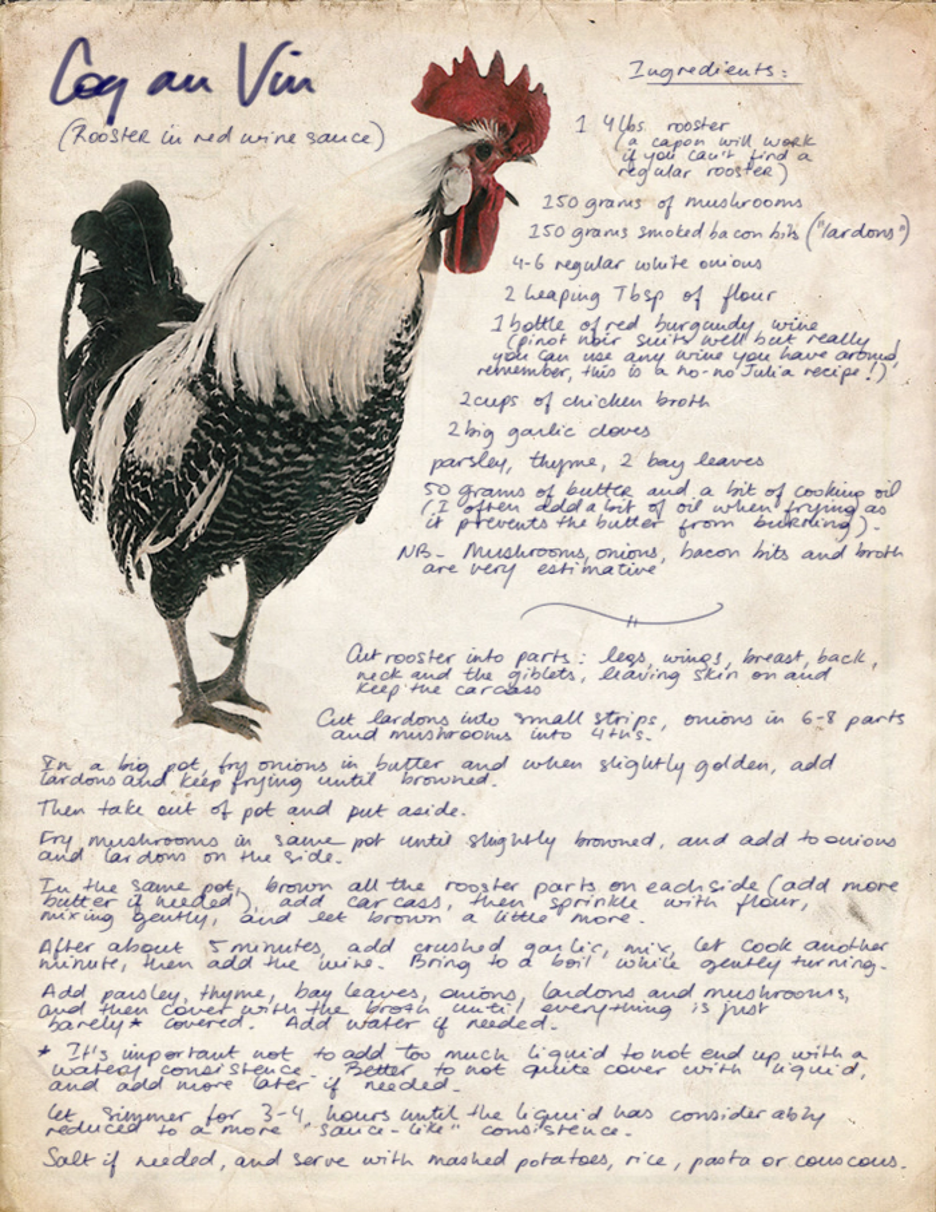 Coq au Vin
(Rooster in red wine sauce)
Ingredients:
1 4lbs. rooster
(a capon will work
if you can't find a
regular rooster)
150 grams of mushrooms
150 grams smoked bacon bits ("lardons")
4-6 regular white onions
2 heaping Tbsp of flour
1 bottle of red burgundy wine
(pinot noir suits well but really
you can use any wine you have around,
remember, this is a no-no Julia recipe!)
2 cups of chicken broth
2 big garlic cloves
parsley, thyme, 2 bay leaves
50 grams of butter and a bit of cooking oil
(I often add a bit of oil when frying as
it prevents the butter from burning).
NB- Mushrooms, onions, bacon bits and broth
are very estimative
Cut rooster into parts: legs, wings, breast, back,
neck and the giblets, leaving skin on and
keep the carcass
Cut lardons into small strips, onions in 6-8 parts
and mushrooms into 4ths.
In a big pot, fry onions in butter and when slightly golden, add
lardons and keep frying until browned.
Then take out of pot and put aside.
Fry mushrooms in same pot until slightly browned, and add to onions
and lardons on the side.
In the same pot, brown all the rooster parts on each side (add more
butter if needed), add carcass, then sprinkle with flour,
mixing gently, and let brown a little more.
After about 5 minutes, add crushed garlic, mix, let cook another
minute, then add the wine. Bring to a boil while gently turning.
Add parsley, thyme, bay leaves, onions, lardons and mushrooms,
and then cover with the broth until everything is just
barely* covered. Add water if needed.
* It's important not to add too much liquid to not end up with a
watery consistence. Better to not quite cover with liquid,
and add more later if needed.
Let simmer for 3-4 hours until the liquid has considerably
reduced to a more "sauce-like" consistence.
Salt if needed, and serve with mashed potatoes, rice, pasta or couscous.